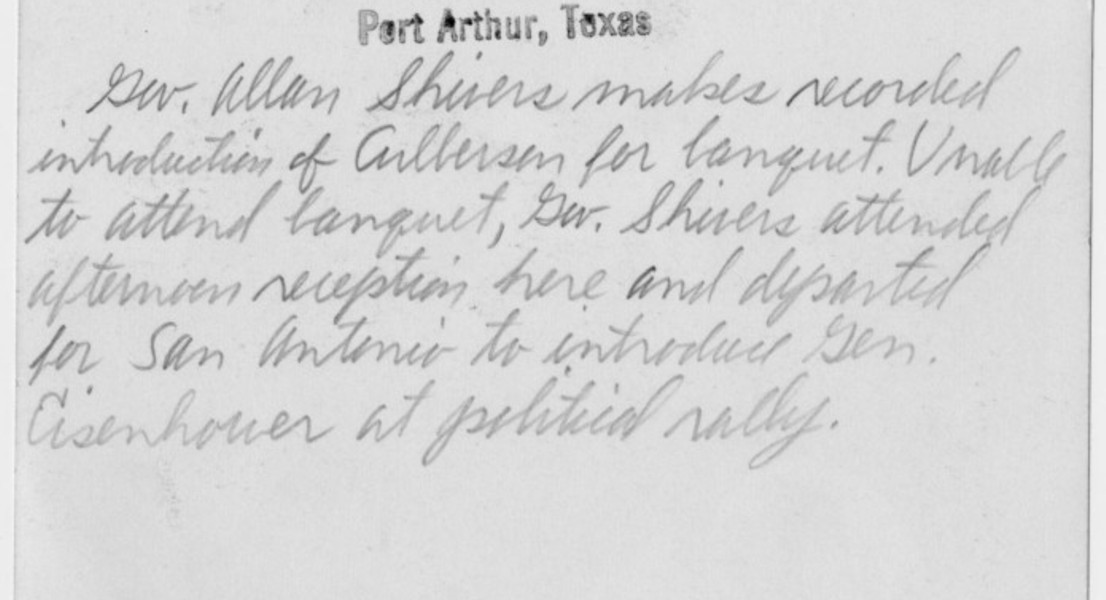 Port Arthur, Texas
Gov. Allan Shivers makes recorded
introduction of Culberson for banquet. Unable
to attend banquet, Gov. Shivers attended
afternoon reception here and departed
for San Antonio to introduce Gen.
Eisenhower at political rally.